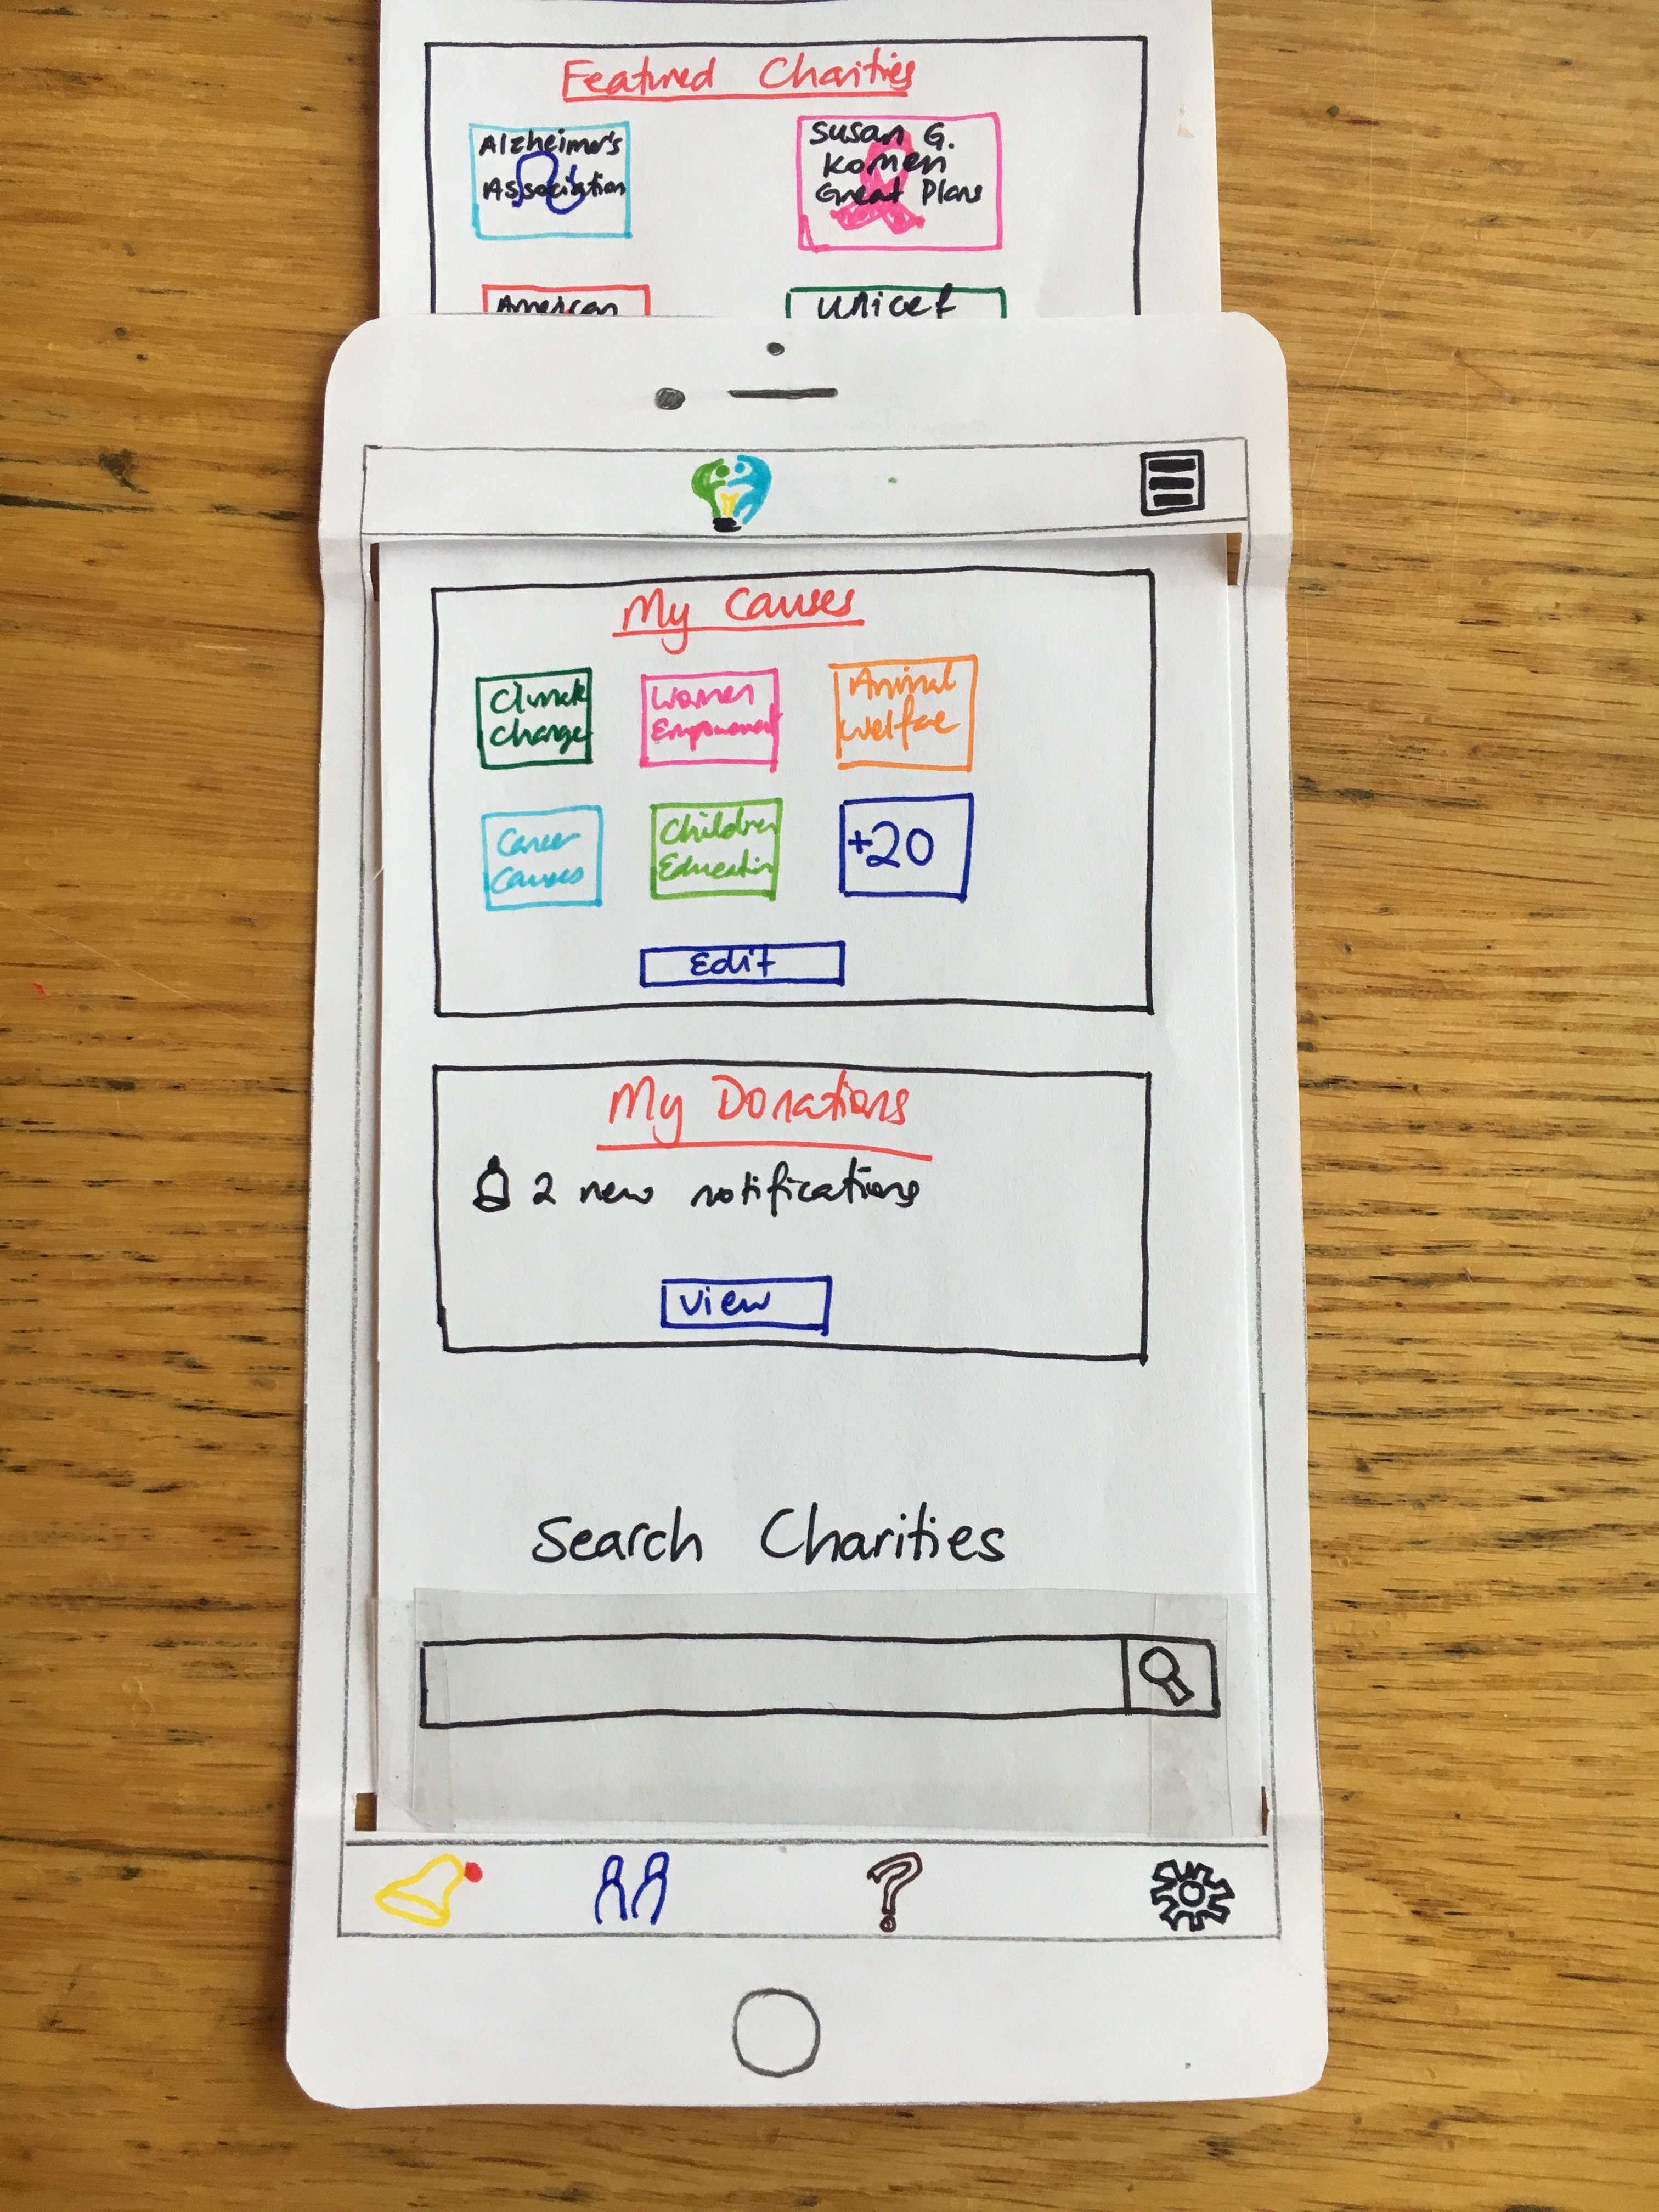 Featured Charities
Alzheimer's
Association
Susan G.
Komen
Great Plans
American
unicef
My Causes
Climate
Change
Women
Empowerment
Animal
Welfare
Cancer
Causes
Children
Education
+20
Edit
My Donations
2 new notifications
View
Search Charities